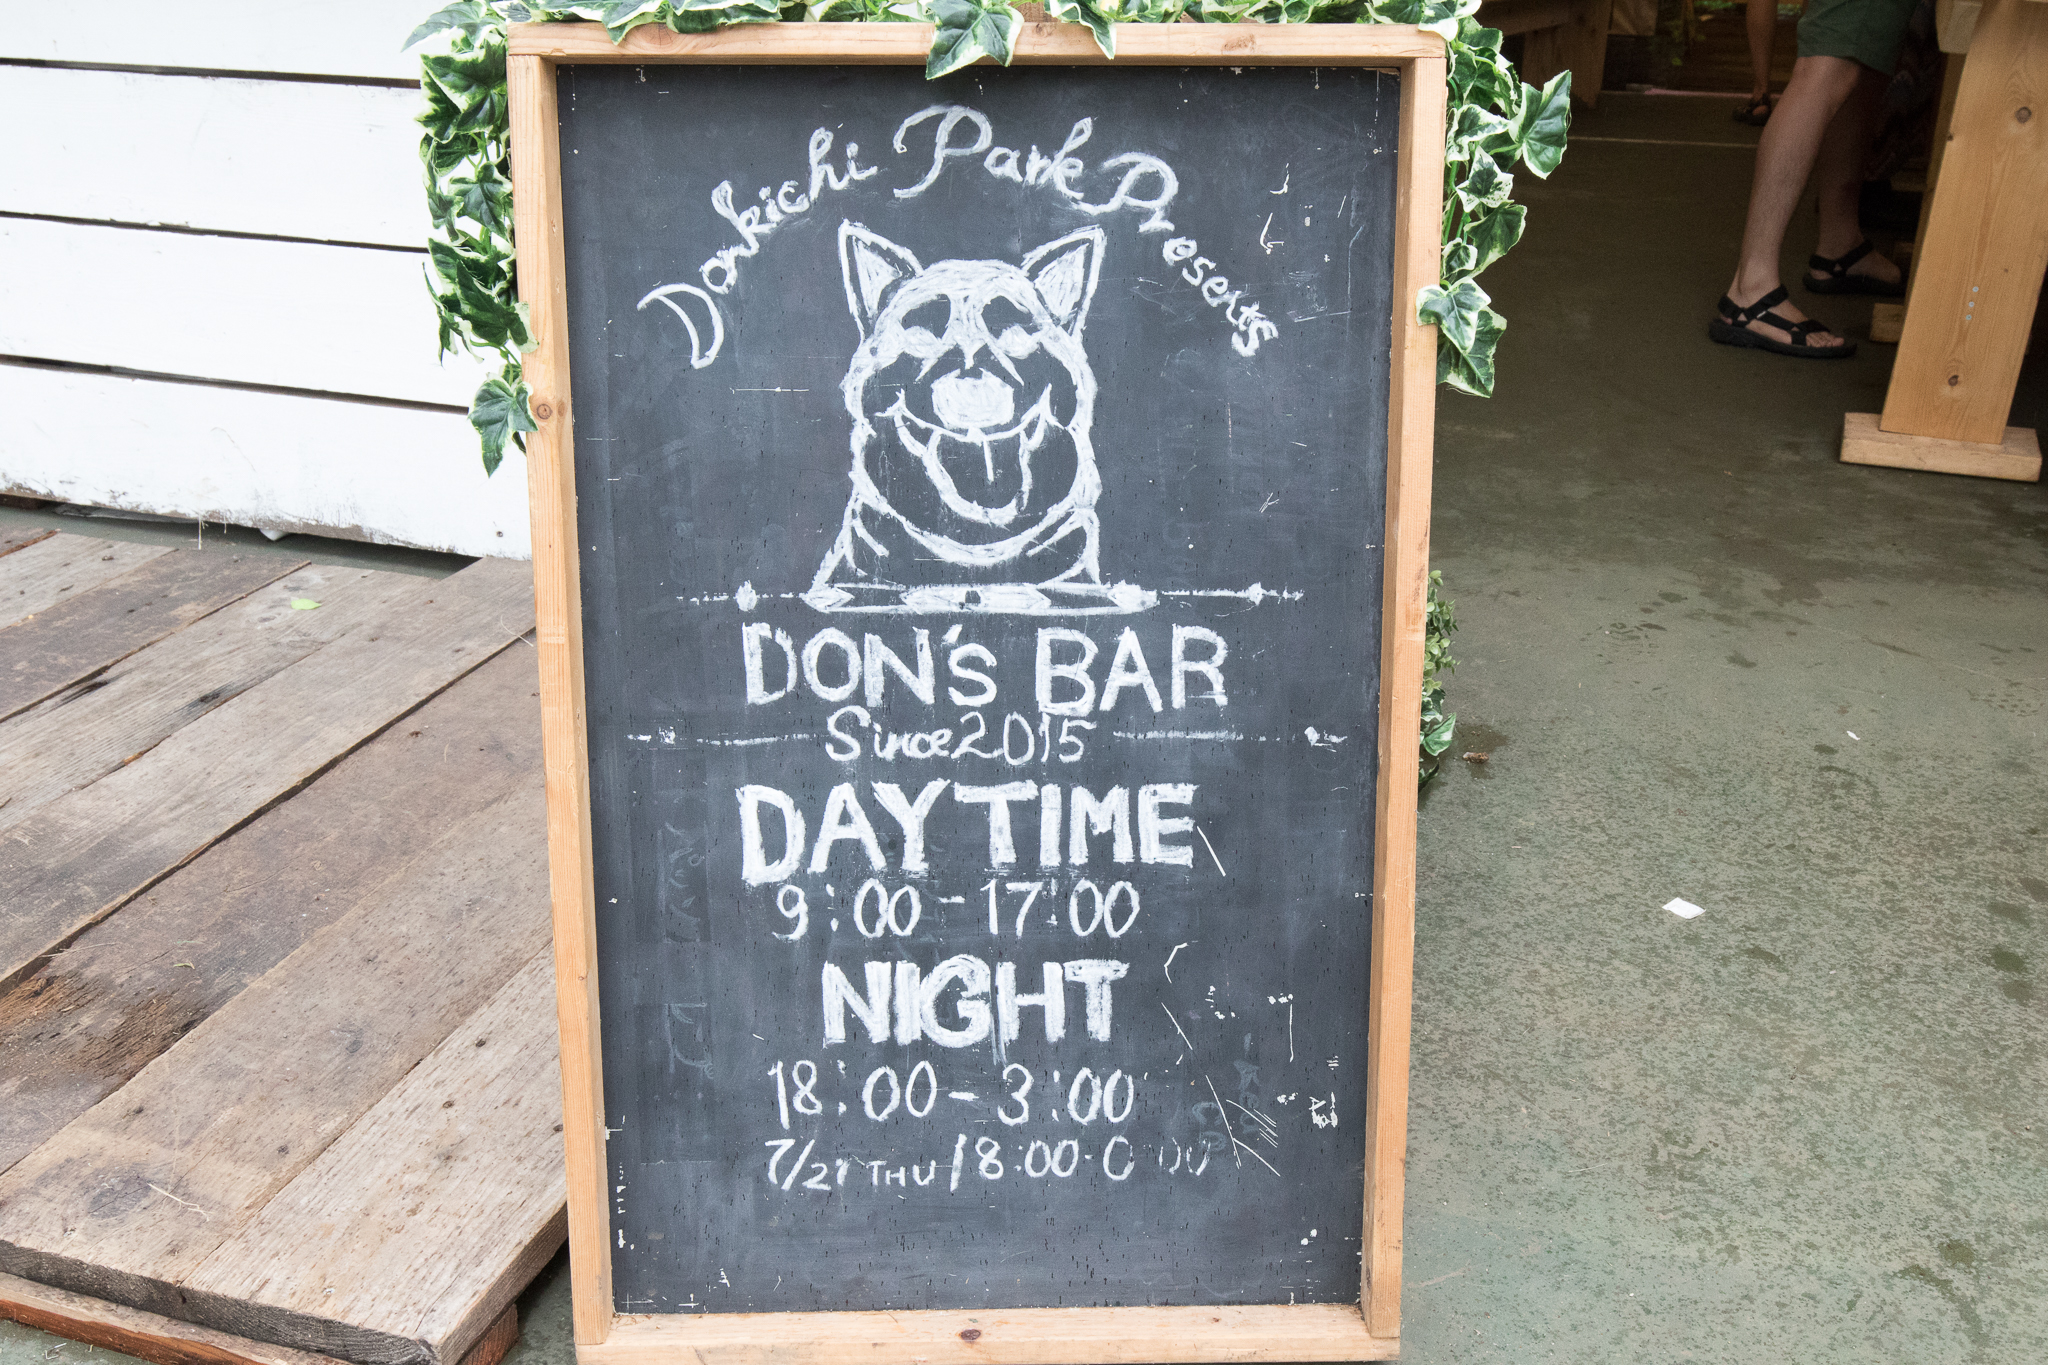 Donkichi Park Presents
DON'S BAR
Since 2015
DAYTIME
9:00-17:00
NIGHT
18:00-3:00
7/21 THU 18:00-0:00